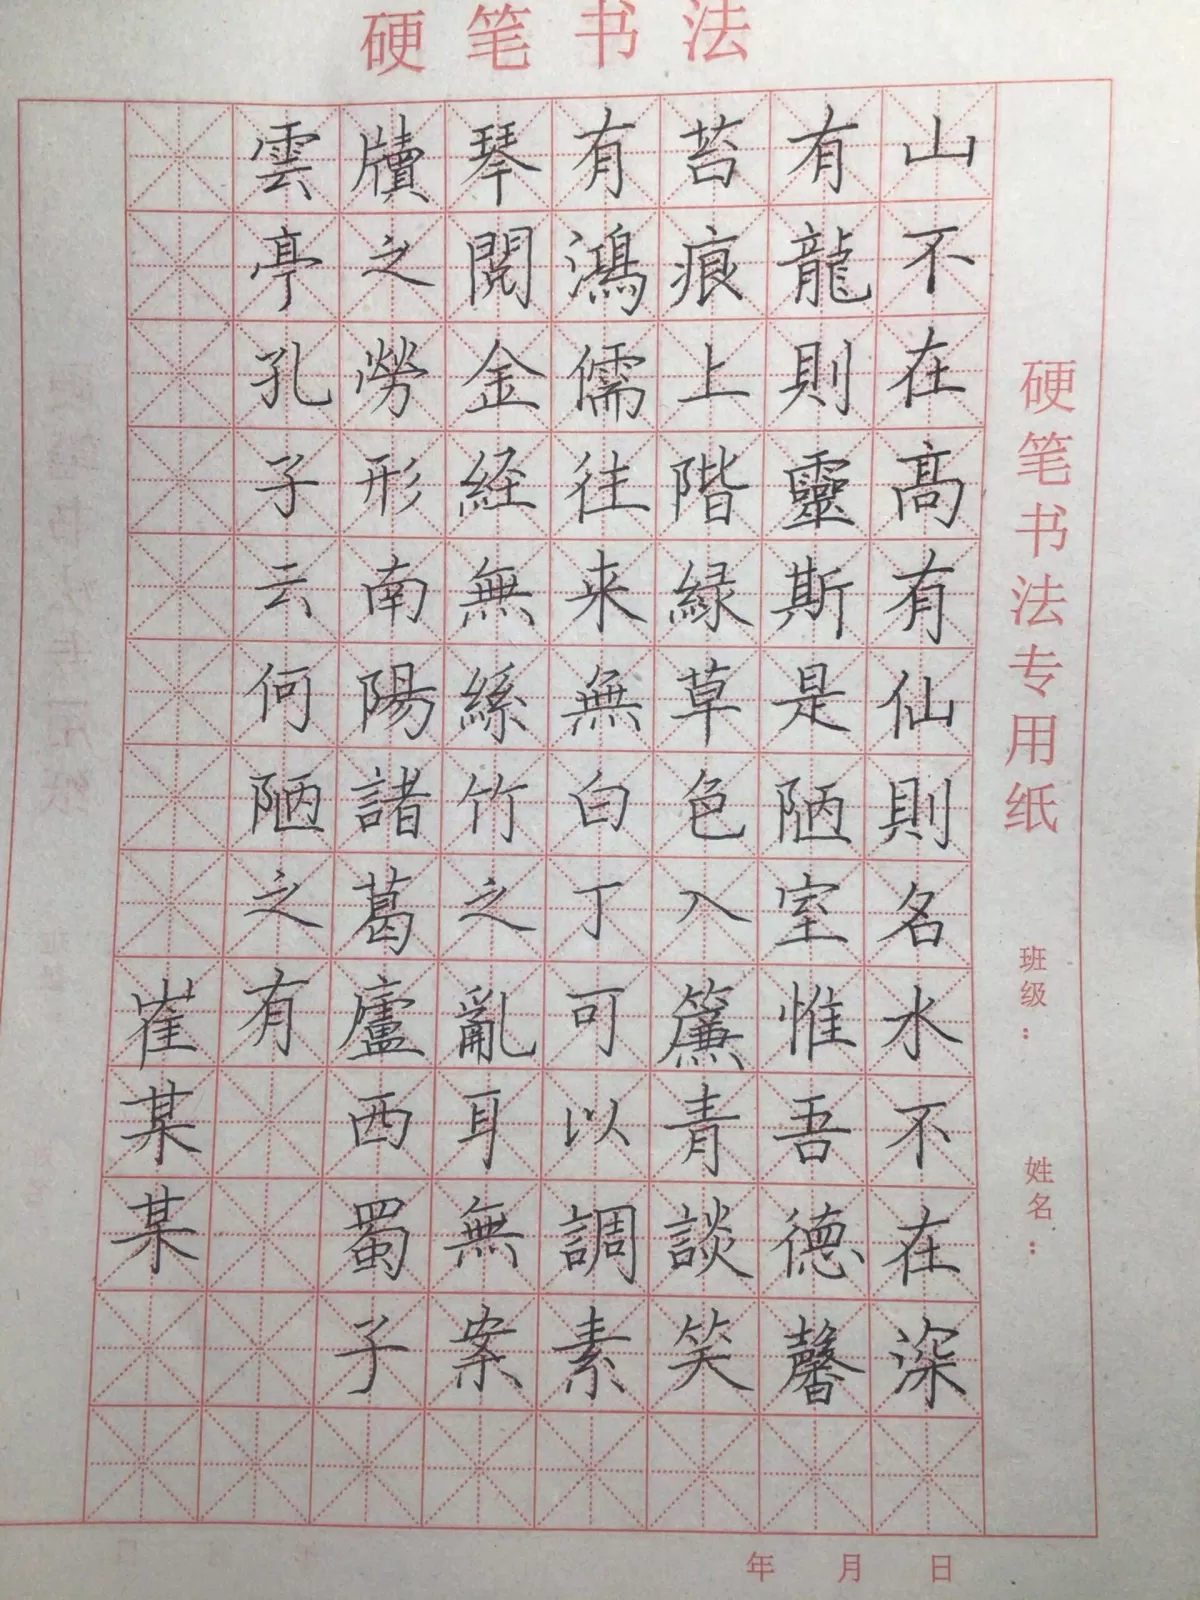 硬笔书法
硬笔书法专用纸
班级：
姓名：
山不在高有仙則名水不在深
有龍則靈斯是陋室惟吾德馨
苔痕上階緑草色入簾青談笑
有鴻儒往来無白丁可以調素
琴閲金経無絲竹之亂耳無案
牘之勞形南陽諸葛廬西蜀子
雲亭孔子云何陋之有
崔某某
年 月 日